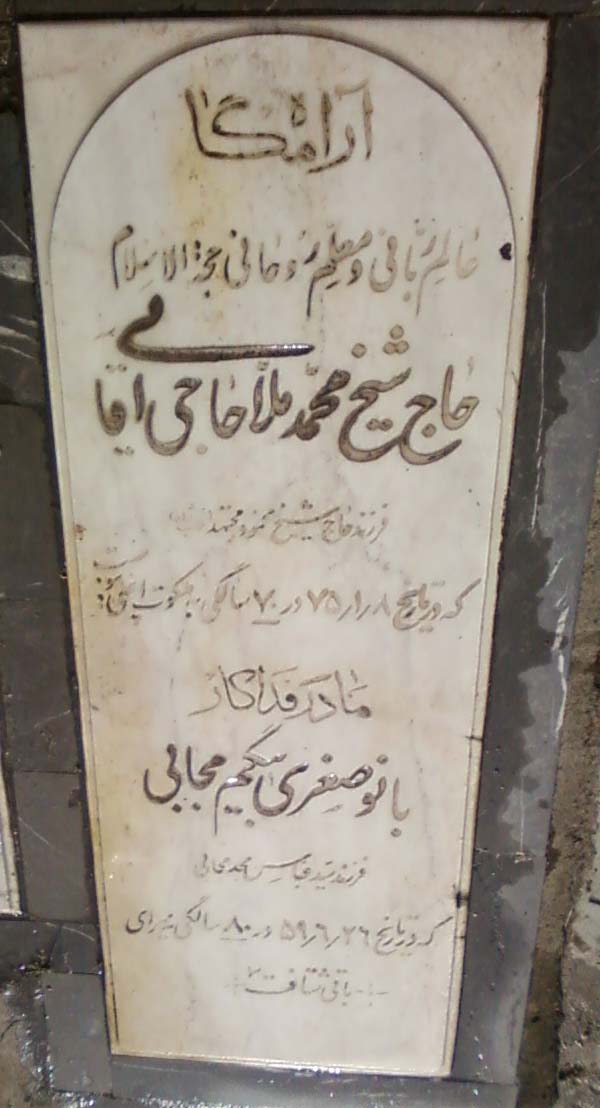 آرامگاه
عالم ربّانی و معلّم روحانی حجة الاسلام
حاج شیخ محمّد ملاّ حاجی اقائی
فرزند حاج شیخ محمود مجتهد
که در تاریخ ۷۵/۱/۸ در ۷۰ سالگی بملکوت اعلی پیوست
مادر فداکار
بانو صغری بیگم مجابی
فرزند سید عباس مجابی
که در تاریخ ۵۹/۶/۲۶ در ۸۰ سالگی بسرای
باقی شتافت